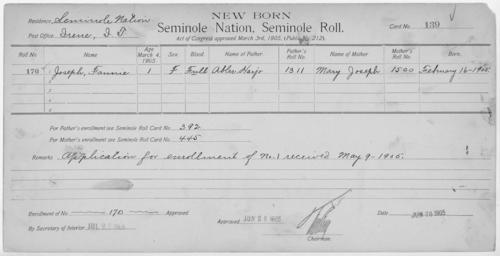 NEW BORN
Residence, Seminole Nation
Seminole Nation, Seminole Roll.
Card No. 139
Post Office, Irene, I. T.
Act of Congress approved March 3rd, 1905, (Public No. 212).
Roll No. Name Age March 4, 1905 Sex Blood Name of Father Father's Roll No. Name of Mother Mother's Roll No. Born.
170 Joseph, Fannie 1 F Full Abler Harjo 1311 Mary Joseph 1500 February 16-1905
For Father's enrollment see Seminole Roll Card No. 392
For Mother's enrollment see Seminole Roll Card No. 445
Remarks Application for enrollment of No. 1 received May 9-1905.
Enrollment of No. 170 Approved
Approved JUN 28 1905
Date JUN 28 1905
By Secretary of Interior
Chairman.